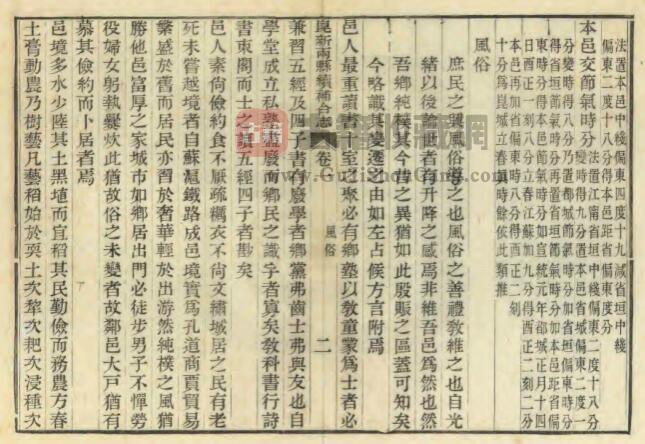 法置本邑中綫偏東四度十九減省垣中綫
偏東二度十八分得本邑距省偏東度分
本邑交節氣時分 法置江南省垣中綫偏東二度十八分
變時得九分置本邑省城偏東二度一
分變時得八分乃置都城節氣時分加省垣偏東時分
得省垣節氣時分再置省垣節氣時分加本邑距省偏
東時分得本邑節氣時分如宣統元年都城正月十四
日酉正一刻八分立春江蘇加九分得酉正二刻二分
本邑再加省偏東時八分得酉正二刻
十分爲崑城立春眞時餘依此類推
風俗
庶民之興風俗導之也風俗之善禮敎維之也自光
緒以後論世者有升降之感焉非維吾邑爲然也然
吾鄉純樸其今昔之異猶如此殷賑之區蓋可知矣
今略識其變遷之由如左占候方言附焉
邑人最重讀書十室之聚必有鄉塾以敎童蒙爲士者必
崑新兩縣續補合志 卷一 風俗 二
兼習五經及四子書有廢學者鄉黨弗齒士弗與友也自
學堂成立私塾盡廢而鄉民之識字者寡矣敎科書行詩
書束閣而士之讀五經四子者尠矣
邑人素尙儉約食不厭疏糲衣不尙文繡城居之民有老
死未嘗越境者自蘇滬鐵路成邑境實爲孔道商賈貿易
繁盛於舊而居民亦習於奢華輕於出游然純樸之風猶
勝他邑富厚之家城市如鄉居出門必徒步男子不憚勞
役婦女躬執爨炊此猶故俗之未變者故鄰邑大戸有
慕其儉約而卜居者焉
邑境多水少陸其土黑埴而宜稻其民勤儉而務農方春
土膏動農乃樹藝凡藝稻始於耎土次犂次耙次浸種次
www.GuJiShuGing.com